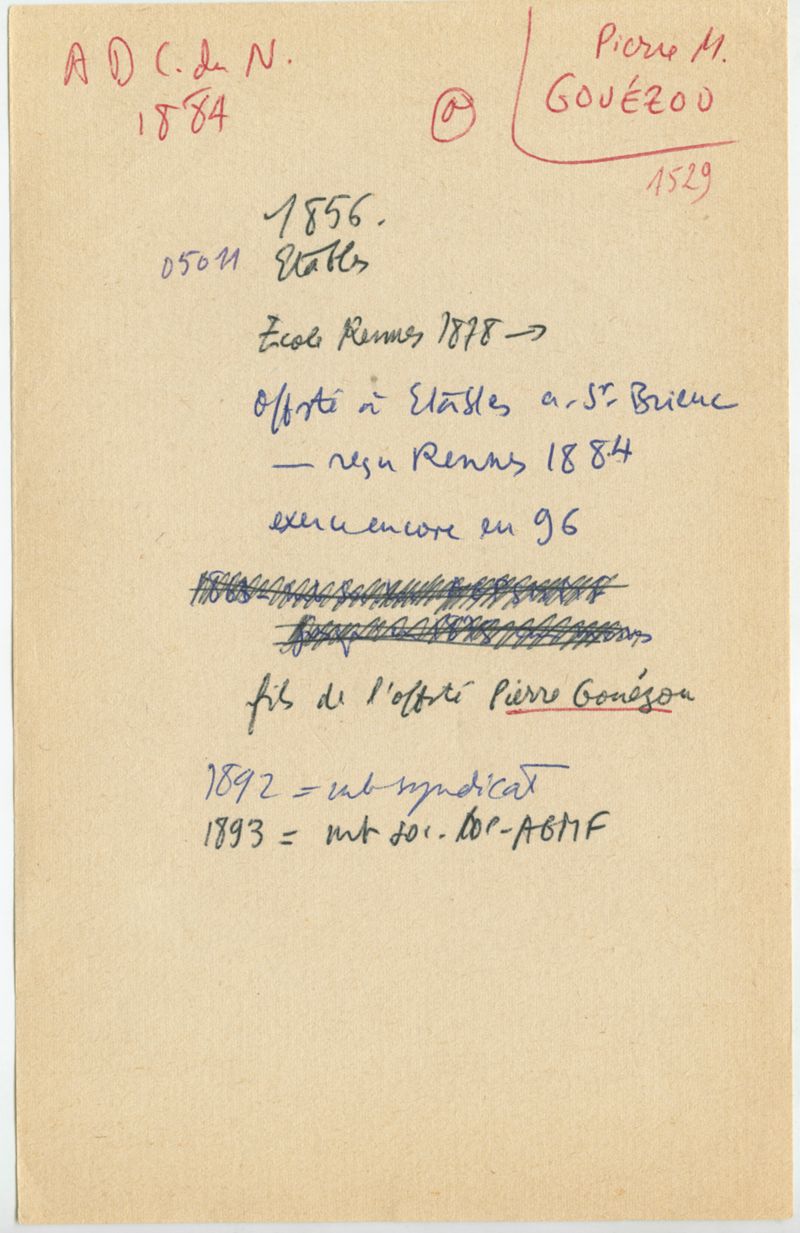 A D C. du N.
1884
Pierre M.
GOUÉZOU
1529
1856.
05011 Etables
Ecole Rennes 1878 →
Offsté à Etables a. St. Brieuc
— reçu Rennes 1884
exerce encore en 96
fils de l'offsté Pierre Gouézou
1892 = mb syndicat
1893 = mb soc. -ABMF